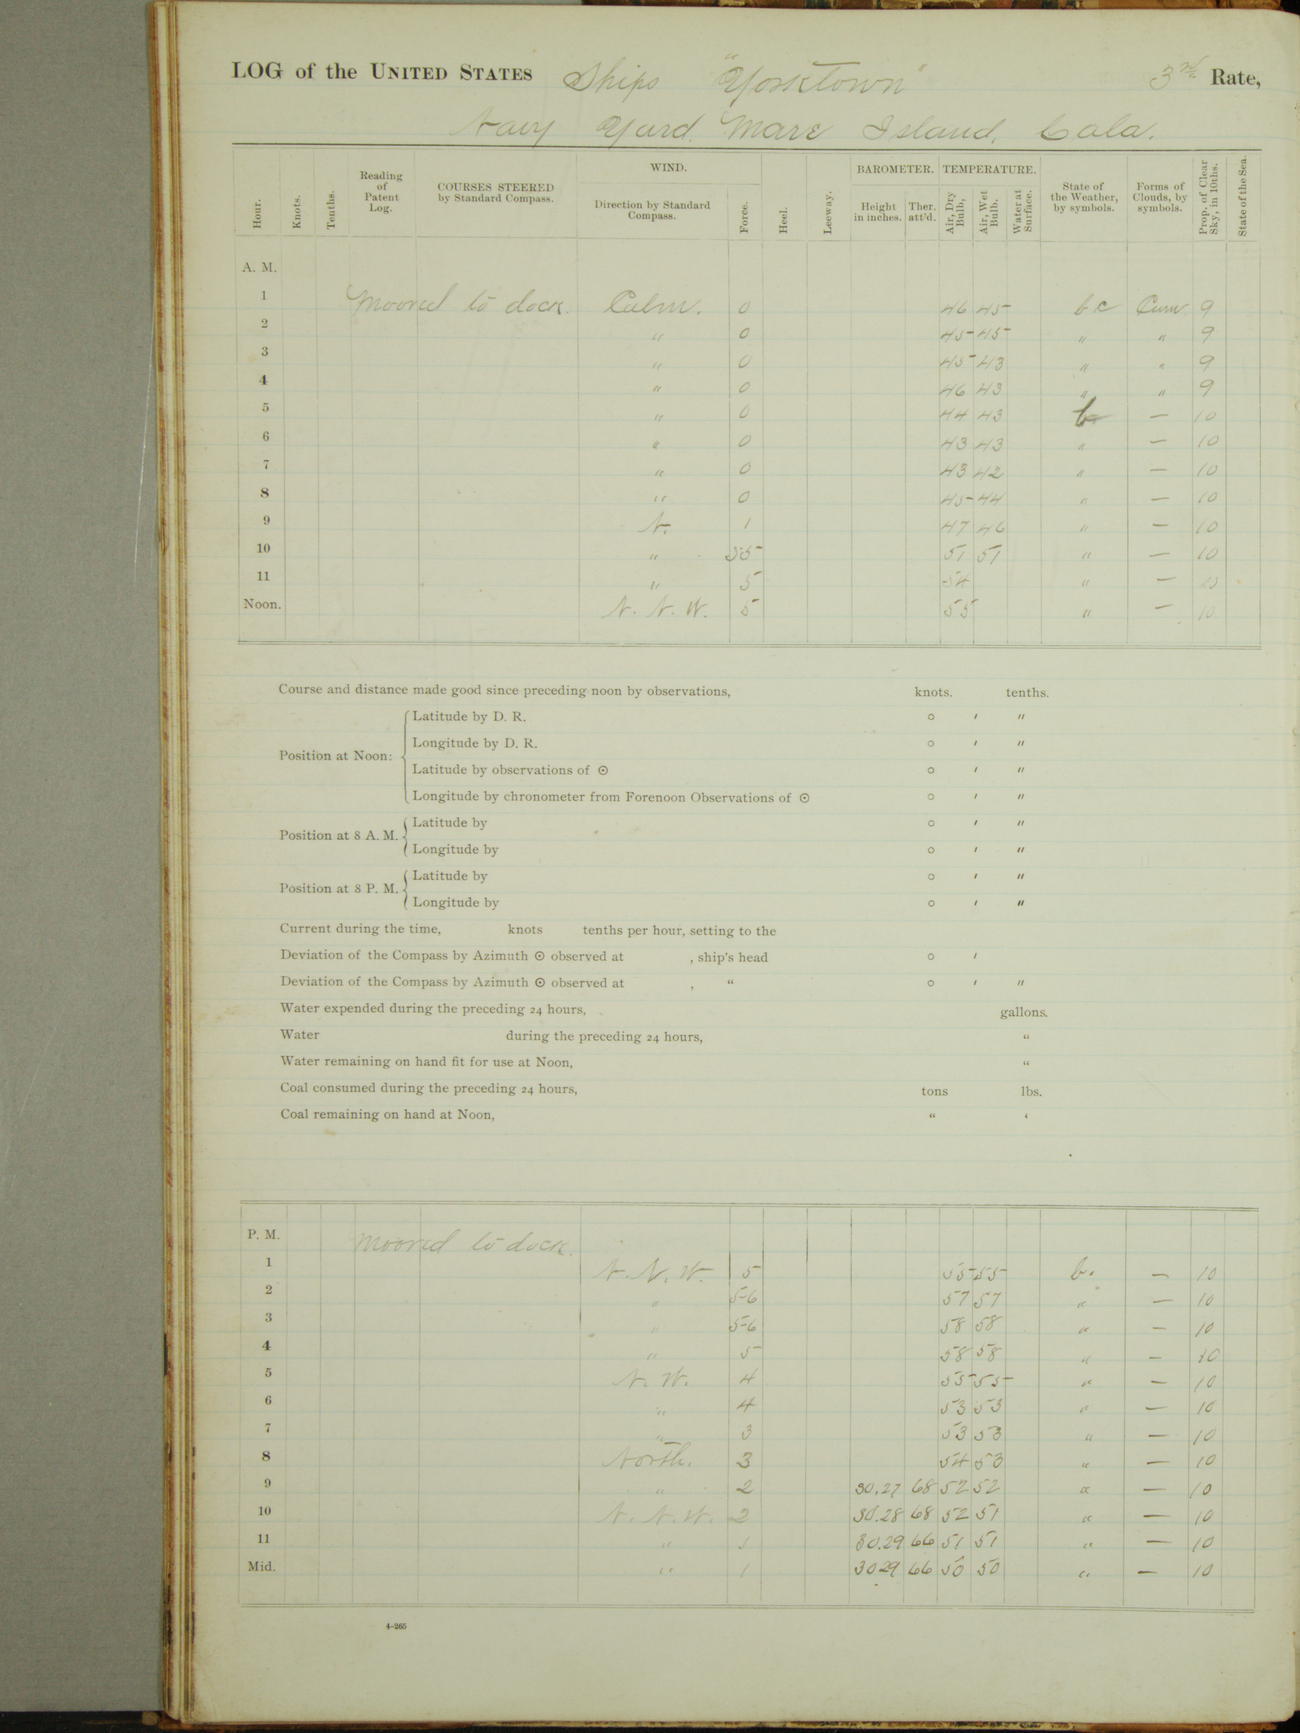 LOG of the UNITED STATES Ships "Yorktown" 3rd Rate,
Navy Yard, Mare Island, Cala.
Hour. Knots. Tenths. Reading of Patent Log. COURSES STEERED by Standard Compass. WIND. Direction by Standard Compass. Force. Heel. Leeway. BAROMETER. Height in inches. Ther. att'd. TEMPERATURE. Air, Dry Bulb, Air, Wet Bulb. Water at Surface. State of the Weather, by symbols. Forms of Clouds, by symbols. Prop. of Clear Sky, in 10ths. State of the Sea.
A. M.
1 Moored to dock. Calm. 0 46 45 bc Cum 9
2 " 0 45 45 " " 9
3 " 0 45 43 " " 9
4 " 0 46 43 " " 9
5 " 0 44 43 b — 10
6 " 0 43 43 " — 10
7 " 0 43 42 " — 10
8 " 0 45 44 " — 10
9 N. 1 47 46 " — 10
10 " 51 51 " — 10
11 " 5 54 " — 10
Noon. N. N. W. 5 55 " — 10
Course and distance made good since preceding noon by observations, knots. tenths.
Position at Noon:
Latitude by D. R. ° ′ ″
Longitude by D. R. ° ′ ″
Latitude by observations of ☉ ° ′ ″
Longitude by chronometer from Forenoon Observations of ☉ ° ′ ″
Position at 8 A. M.
Latitude by ° ′ ″
Longitude by ° ′ ″
Position at 8 P. M.
Latitude by ° ′ ″
Longitude by ° ′ ″
Current during the time, knots tenths per hour, setting to the
Deviation of the Compass by Azimuth ☉ observed at , ship's head ° ′
Deviation of the Compass by Azimuth ☉ observed at , " ° ′ ″
Water expended during the preceding 24 hours, gallons.
Water during the preceding 24 hours, "
Water remaining on hand fit for use at Noon, "
Coal consumed during the preceding 24 hours, tons lbs.
Coal remaining on hand at Noon, " ‘
P. M. Moored to dock.
1 N. N. W. 5 55 55 b. — 10
2 " 5-6 57 57 " — 10
3 " 5-6 58 58 " — 10
4 " 5 58 58 " — 10
5 N. W. 4 55 55 " — 10
6 " 4 53 53 " — 10
7 " 3 53 53 " — 10
8 North. 3 54 53 " — 10
9 " 2 30.27 68 52 52 " — 10
10 N. N. W. 2 30.28 68 52 51 " — 10
11 " 1 30.29 66 51 51 " — 10
Mid. " 1 3029 66 50 50 " — 10
4-265